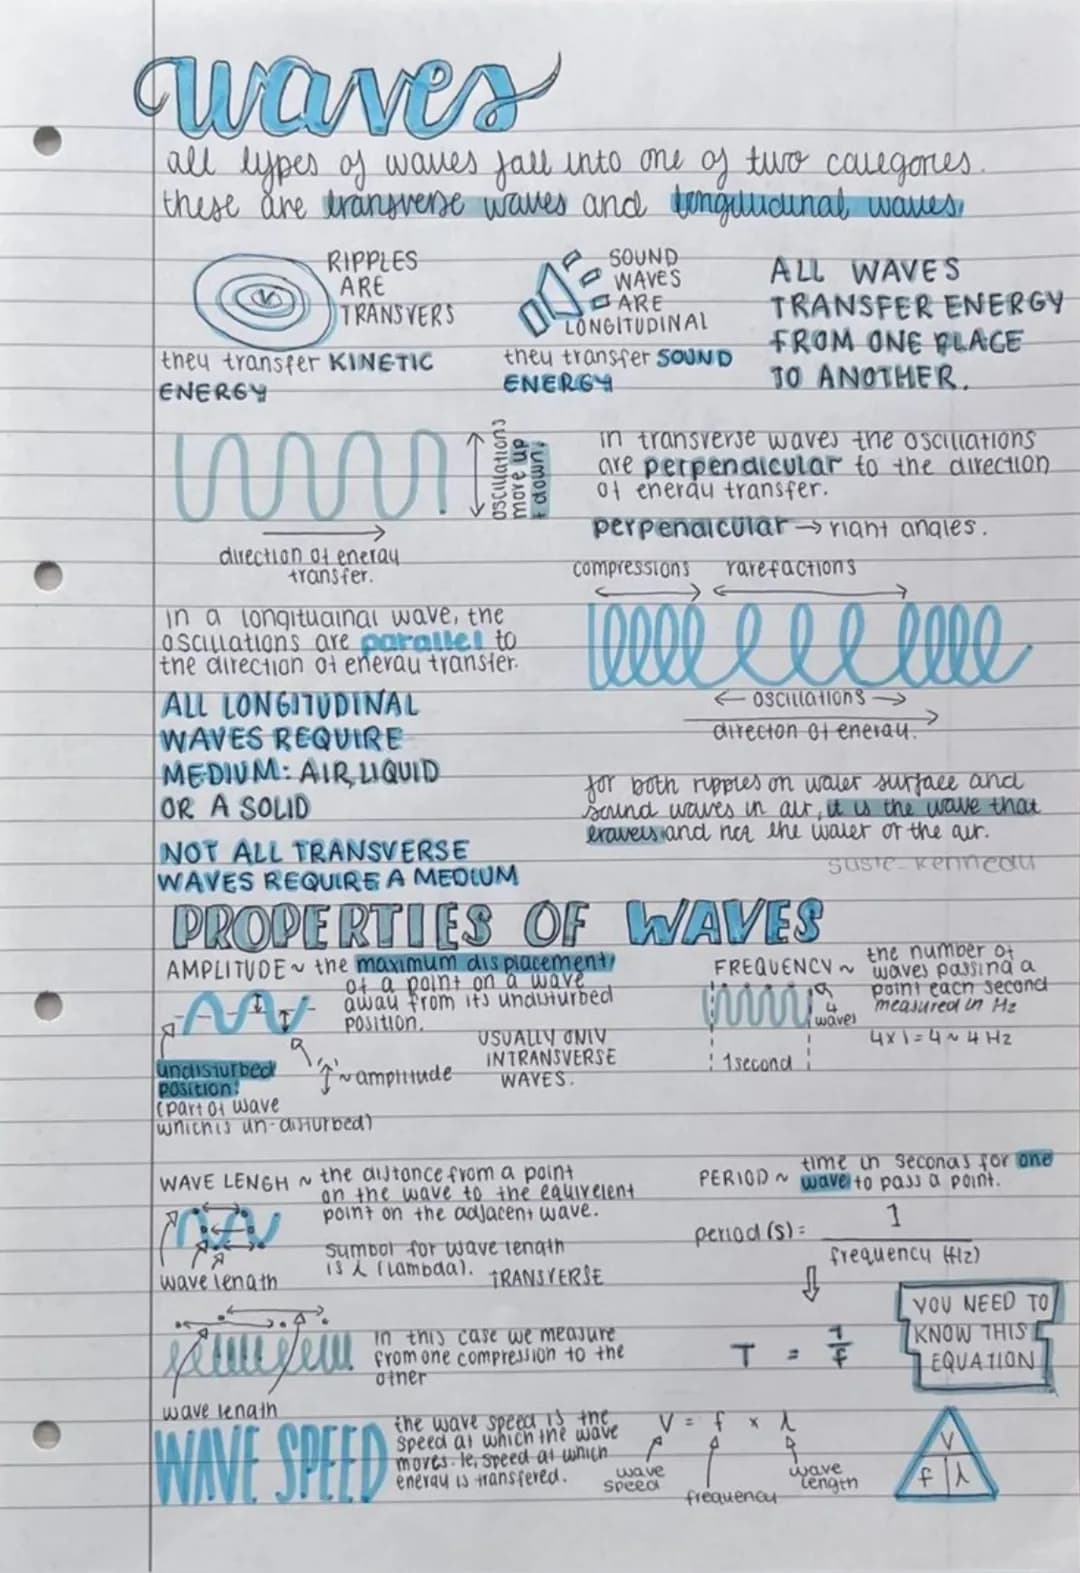 waves
all types of waves fall into one of two categories.
these are transverse waves and longitudinal waves.
RIPPLES
ARE
TRANSVERS
they transfer KINETIC
ENERGY
SOUND
WAVES
ARE
LONGITUDINAL
they transfer SOUND
ENERGY
ALL WAVES
TRANSFER ENERGY
FROM ONE PLACE
TO ANOTHER.
oscillations
move up
+ down.
direction of energy
transfer.
in transverse waves the oscillations
are perpendicular to the direction
of energy transfer.
perpendicular → right angles.
compressions rarefactions
in a longitudinal wave, the
oscillations are parallel to
the direction of energy transfer.
← oscillations →
directon of energy.
ALL LONGITUDINAL
WAVES REQUIRE
MEDIUM: AIR, LIQUID
OR A SOLID
for both ripples on water surface and
sound waves in air, it is the wave that
travels and not the water or the air.
NOT ALL TRANSVERSE
WAVES REQUIRE A MEDIUM
susie_kennedy
PROPERTIES OF WAVES
AMPLITUDE ~ the maximum displacement
of a point on a wave
away from its undisturbed
position.
undisturbed
position:
(part of wave
which is un-disturbed)
~ amplitude
USUALLY ONLY
IN TRANSVERSE
WAVES.
FREQUENCY ~ the number of
waves passing a
point each second
measured in Hz
4
waves
1 second
4 x 1 = 4 ~ 4 Hz
WAVE LENGH ~ the distance from a point
on the wave to the equivelent
point on the adjacent wave.
wave length
symbol for wave length
is λ (lambda). TRANSVERSE
PERIOD ~ time in seconds for one
wave to pass a point.
period (s) = 1
frequency (Hz)
T = 1
f
YOU NEED TO
KNOW THIS
EQUATION
in this case we measure
from one compression to the
other
wave length
WAVE SPEED
the wave speed is the
speed at which the wave
moves. ie, speed at which
energy is transfered.
V = f x λ
wave
speed
frequency
wave
length
V
f λ